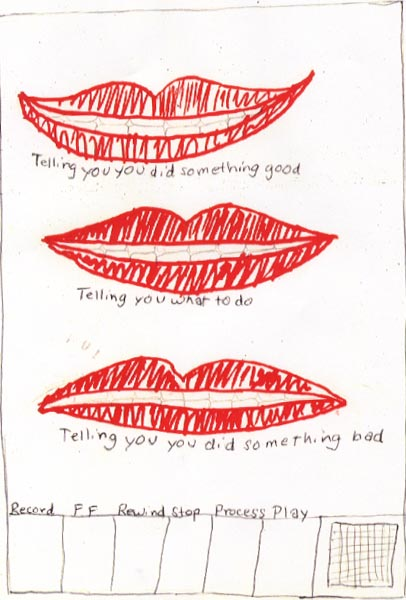 Telling you you did something good
Telling you what to do
Telling you you did something bad
Record FF Rewind Stop Process Play